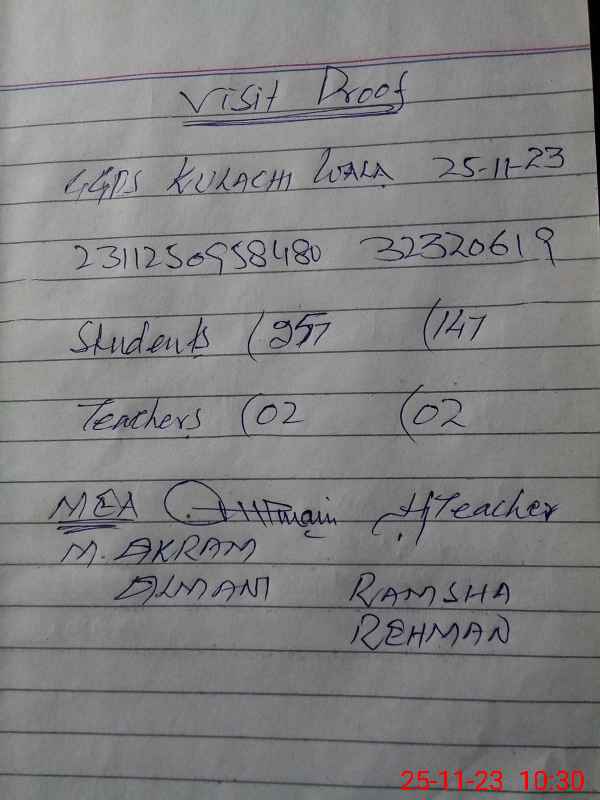 Visit Proof
GGPS KULACHI WALA 25-11-23
2311250958480 32320619
Students (257 (147
Teachers (02 (02
MEA H/Teacher
M. AKRAM
ALMANI RAMSHA
REHMAN
25-11-23 10:30